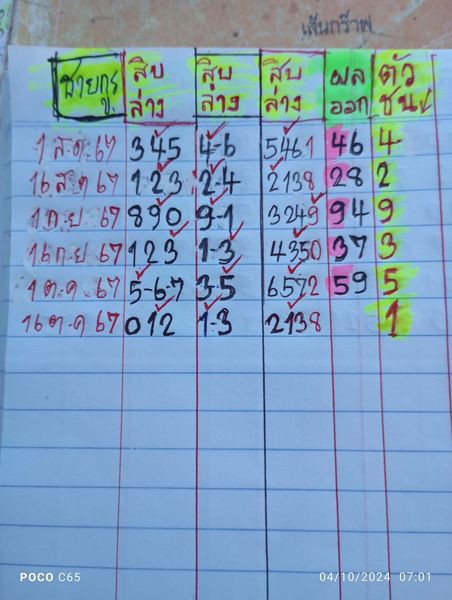 เส้นกร๊าฟ
สายกรู สิบล่าง สิบล่าง สิบล่าง ผลออก ตัวชน
1 ส.ค. 67 345 4-6 5461 46 4
16 ส ค 67 123 2-4 2138 28 2
1 ก.ย. 67 890 9-1 3249 94 9
16 ก.ย 67 123 1-3 4350 37 3
1 ต.ค. 67 5-6-7 3-5 6572 59 5
16 ต.ค 67 012 1-3 2138 1
POCO C65 04/10/2024 07:01